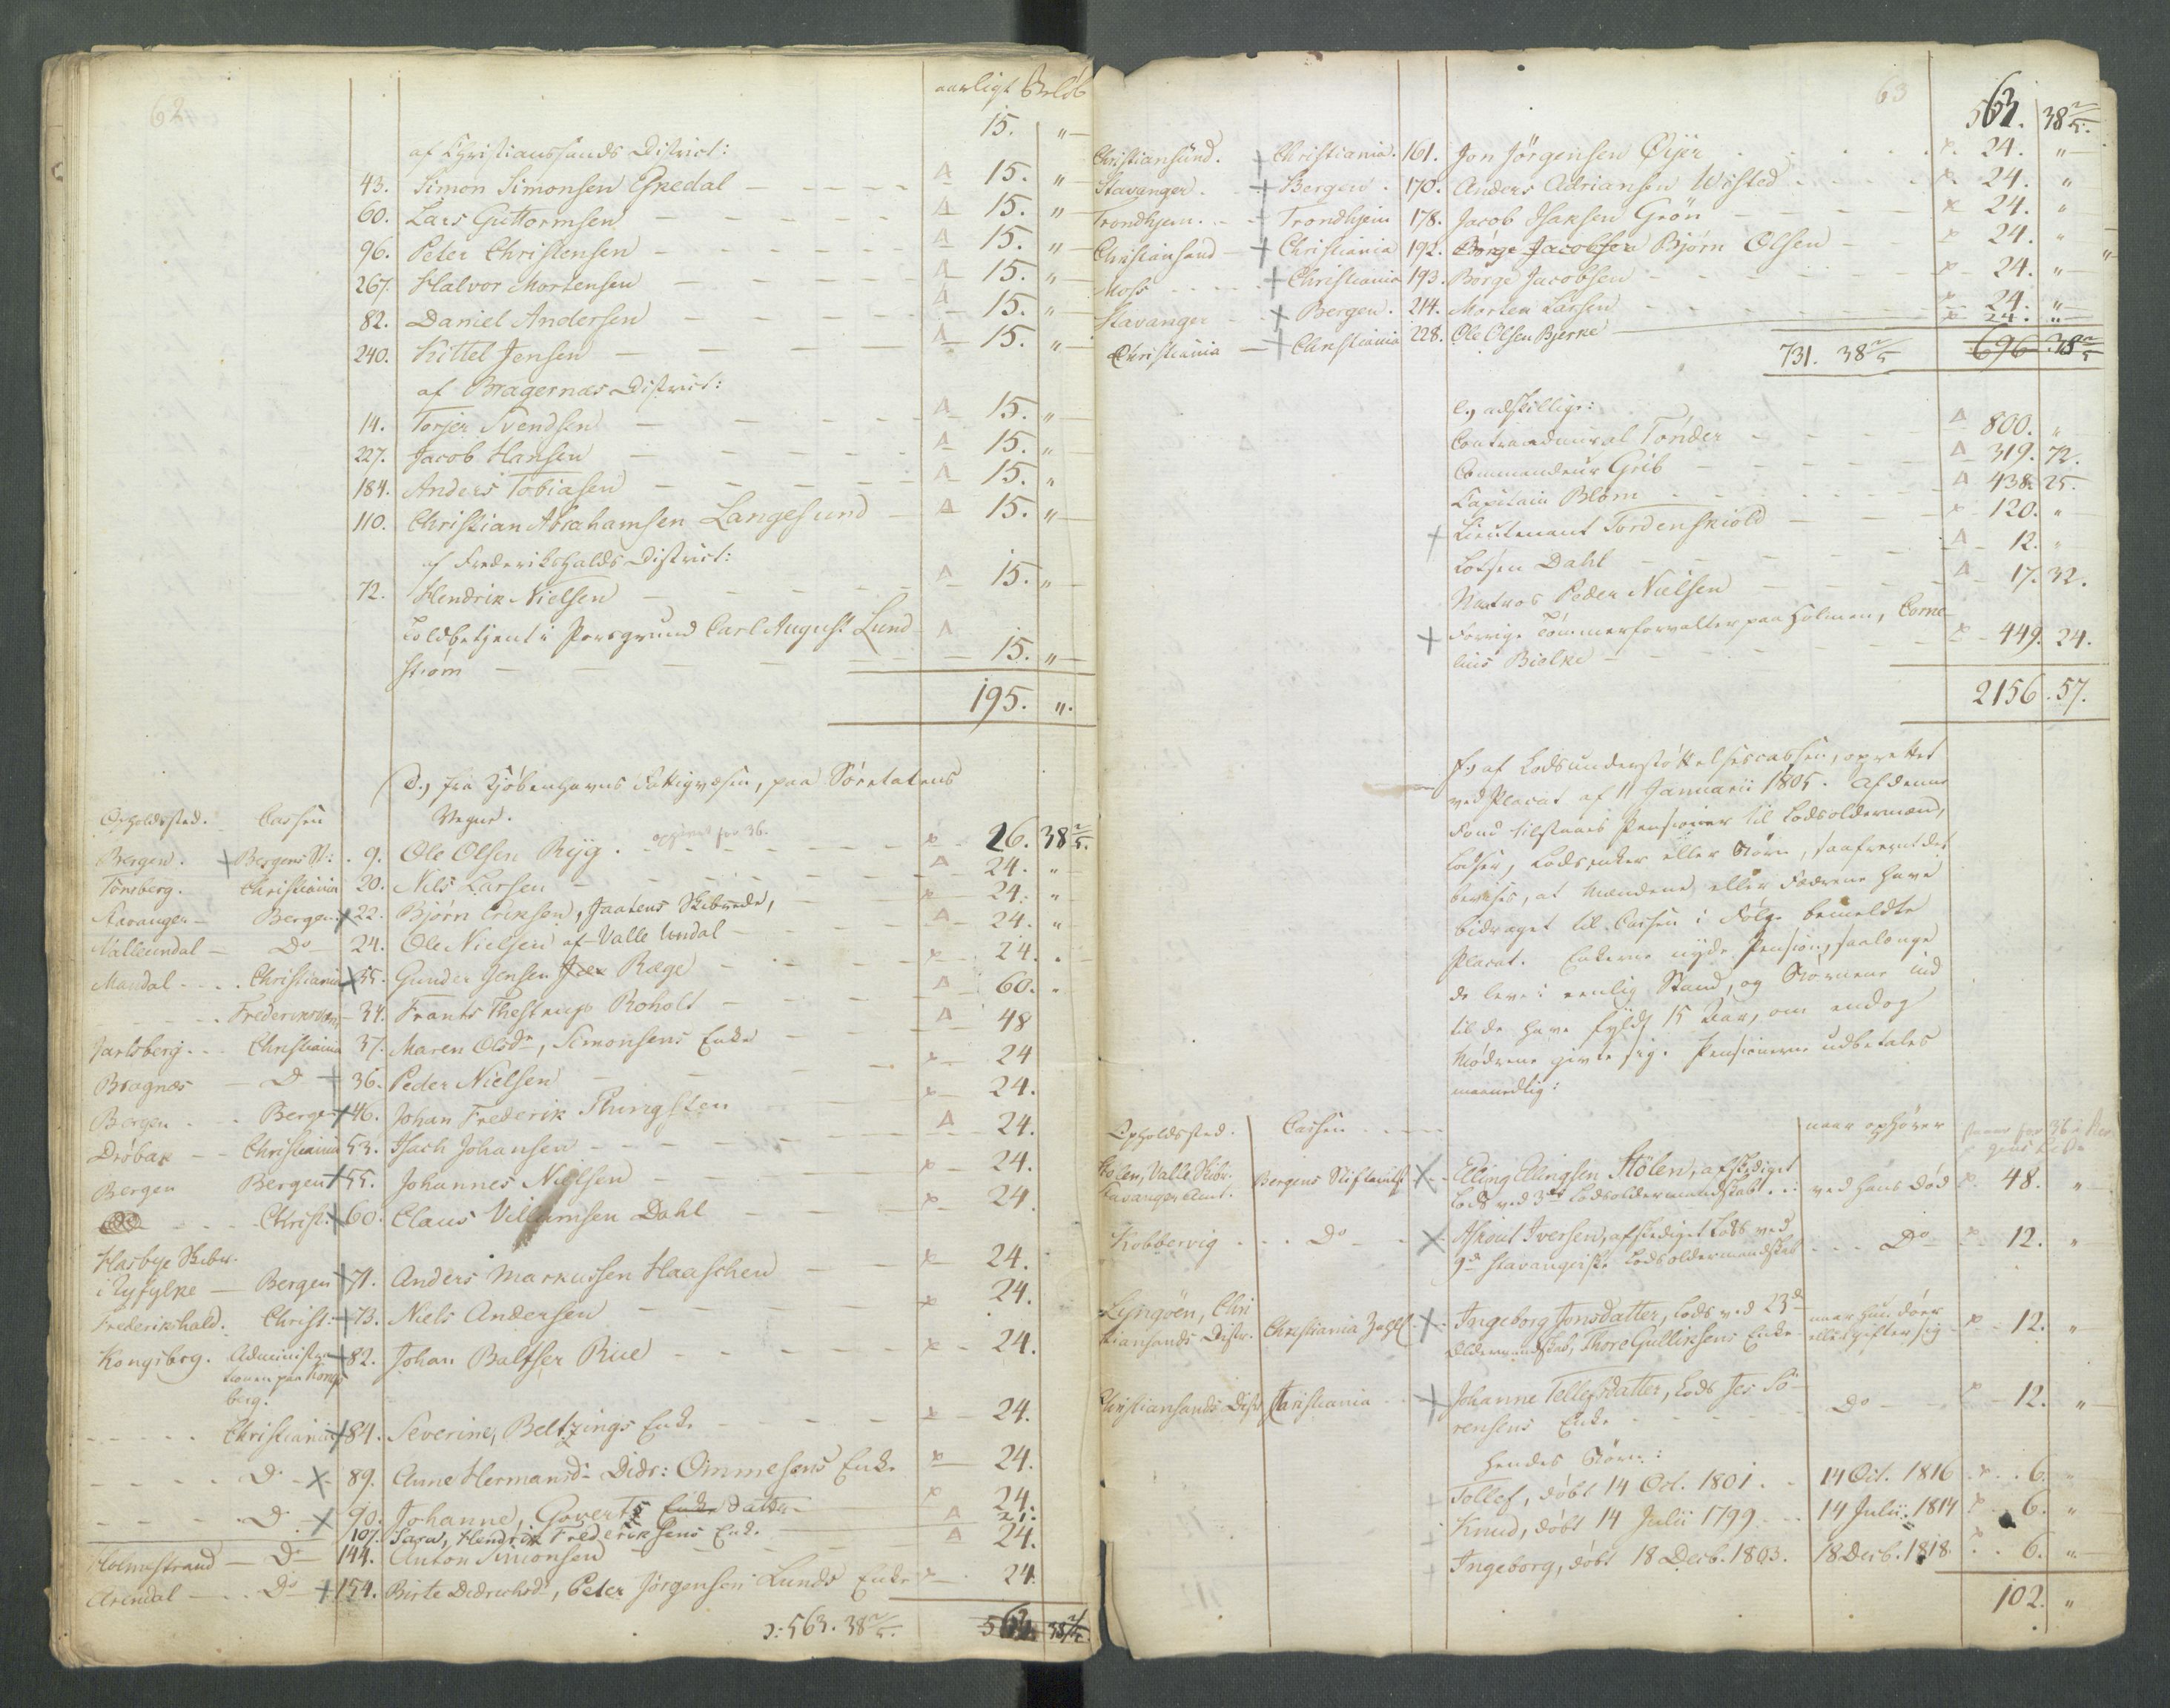 62
aarligt Beløb
15. "
af Christianssands District:
43. Simon Simonsen Egedal - A 15. "
60. Lars Guttormsen - A 15. "
96. Peter Christensen - A 15. "
267. Halvor Mortensen - A 15. "
82. Daniel Andersen - A 15. "
240. Kittel Jensen - A 15. "
af Bragernæs District:
14. Torjer Svendsen - A 15. "
227. Jacob Hansen - A 15. "
184. Anders Tobiasen - A 15. "
110. Christian Abrahamsen Langesund - A 15. "
af Frederikshalds District:
72. Hendrik Nielsen - A 15. "
Toldbetjent i Porsgrund Carl August Lund A
strøm - 15. "
195. "
d., fra Kjøbenhavns Fattigvæsen, paa Søretatens
Opholdssted. Cassen Vegne.
Bergen. + Bergens St: 9. Ole Olsen Ryg. ophører for 36. x 26. 38 2/5.
Tønsberg. Christiania 20. Nils Larsen - A 24. "
Stavanger - Bergen + 22. Bjørn Eriksen, Jaatens Skibrede, x 24. "
Valleundal - Do 24. Ole Nielsen af Valle Undal - A 24. "
Mandal - Christiania + 35. Gunder Jensen Ræge - x 24. "
Frederiksværn - 34. Frants Thestrup Roholt - A 60. "
Jarlsberg - Christiania 37. Maren Olsdr, Simonsens Enke - A 48
Bragnæs - Do + 36. Peder Nielsen - x 24
Bergen - Bergen + 46. Johan Frederik Thingsten x 24.
Drøbak - Christiania 53. Isach Johansen - A 24.
Bergen Bergen + 55. Johannes Nielsen - x 24.
Christ: + 60. Claus Villumsen Dahl x 24.
Hasbye Skibr.
i Ryfylke - Bergen + 71. Anders Markussen Haaschen x 24.
Frederikshald. Christ: + 73. Niels Andersen x 24.
Kongsberg. Administra- + 82. Johan Baltser Rue x 24.
tionen paa Kongs
berg.
Christiania + 84. Severine, Beltzings Enke x 24.
Do + 89. Anne Hermansd. Didr: Ommesens Enke x 24.
Do + 90. Johanne, Goverts Enke datter x 24.
107. Sara, Hendrik Frederiksens Enke A 24.
Holmestrand - Do 144. Anton Simonsen A 24.
Arendal - Do + 154. Birte Dedrichsdr, Peter Jørgensen Lunds Enke x 24.
: 563. 38 2/5. 563. 38 2/5
63
563. 38 2/5.
Christiansund. + Christiania. 161. Jon Jørgensen Øijer x 24. "
Stavanger. + Bergen. 170. Anders Adriansen Wisted x 24. "
Trondhjem. - Trondhjem 178. Jacob Isaksen Grøn x 24. "
Christiansand + Christiania 192. Børge Jacobsen Bjørn Olsen x 24. "
Moss + Christiania 193. Børge Jacobsen x 24. "
Stavanger + Bergen. 214. Morten Larsen x 24. "
Christiania - + Christiania 228. Ole Olsen Bjerke x 24. "
731. 38 2/5 696 38 2/5
e., adskillige:
Contraadmiral Tønder A 800. "
Commandeur Grib A 319. 72.
Capitain Blom A 438. 25.
+ Lieutenant Tordenskiold x 120. "
Lodsen Dahl A 12. "
Matros Peder Nielsen A 17. 32.
+ Forrige Tømmerforvalter paa Holmen, Corne-
lius Bielke x 449. 24.
2156. 57.
f., af Lodsunderstøttelsescassen, oprettet
ved Placat af 11 Januarii 1805. Af denne
Fond tilstaaes Pensioner til Lodsoldermænd,
Lodser, Lodsenker eller Børn, saafremt det
bevises, at Mændene, eller Fædrene have
bidraget til Cassen i Følge bemeldte
Placat. Enkerne nyde Pension, saalænge
de leve i eenlig Stand, og Børnene ind
til de have fyldt 15 Aar, om endog
Mødrene givte sig. Pensionerne udbetales
maanedlig:
Opholdssted. Cassen naar ophører
Hølen, Valle Skibr. Bergens Stiftamt + Elling Ellingsen Hølen, afskediget
Stavanger Amt. Lods ved 3de Lodsoldermandskab. ved hans Død x 48. "
Kobbervig Do + Askout Iversen, afskediget Lods ved
9de Stavangerske Lodsoldermandskab Do x 12. "
Lyngöen, Chri Ingeborg Jonsdatter, Lods ved 23de naar hun døer
stiansands Distr. Christiania Zahlk. + Oldermandskab, Thore Gulliksens Enke eller gifter sig x 12. "
Christiansands Distr. Christiania + Johanne Tellefsdatter, Lods Jes Sö-
rensens Enke Do x 12. "
hendes Børn:
Tollef, døbt 14 Oct. 1801. 14 Oct. 1816 x 6. "
Knud, døbt 14 Julii 1799 14 Julii 1814 x 6. "
Ingeborg, døbt 18 Decb. 1803. 18 Decb. 1818. 6. "
102. "